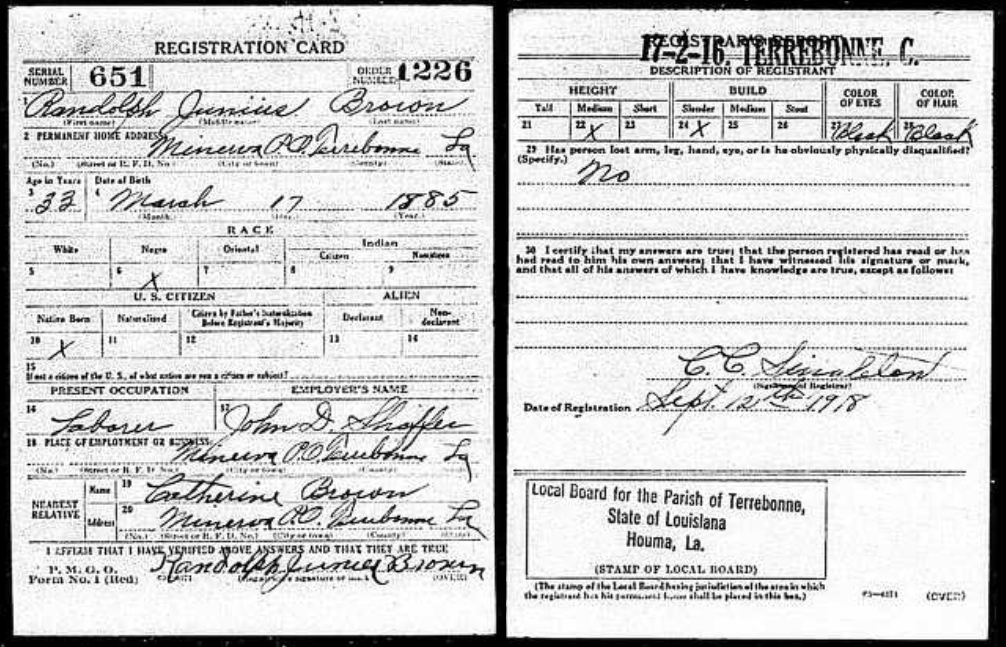 REGISTRATION CARD
SERIAL NUMBER 651 ORDER NUMBER 1226
1 Randolph Junius Brown
(First name) (Middle name) (Last name)
2 PERMANENT HOME ADDRESS:
Minerva P.O. Terrebonne La
(No.) (Street or R. F. D. No.) (City or town) (County) (State)
Age in Years Date of Birth
3 33 4 March 17 1885
(Month.) (Day.) (Year.)
RACE
White Negro Oriental Indian
Citizen Noncitizen
5 6 X 7 8 9
U. S. CITIZEN ALIEN
Native Born Naturalized Citizen by Father's Naturalization Before Registrant's Majority Declarant Non-declarant
10 X 11 12 13 14
15
If not a citizen of the U. S., of what nation are you a citizen or subject?
PRESENT OCCUPATION EMPLOYER'S NAME
16 Laborer 17 John D. Shaffer
18 PLACE OF EMPLOYMENT OR BUSINESS:
Minerva P.O. Terrebonne La
(No.) (Street or R. F. D. No.) (City or town) (County)
NEAREST RELATIVE Name 19 Catherine Brown
Address 20 Minerva P.O. Terrebonne La
(No.) (Street or R. F. D. No.) (City or town) (County) (State)
I AFFIRM THAT I HAVE VERIFIED ABOVE ANSWERS AND THAT THEY ARE TRUE
P. M. G. O.
Form No. 1 (Red) Randolph Junius Brown
(Registrant's signature or mark) (OVER)
REGISTRAR'S REPORT
17-2-16. TERREBONNE, C.
DESCRIPTION OF REGISTRANT
HEIGHT BUILD COLOR OF EYES COLOR OF HAIR
Tall Medium Short Slender Medium Stout
21 22 X 23 24 X 25 26 27 Black 28 Black
29 Has person lost arm, leg, hand, eye, or is he obviously physically disqualified?
(Specify.) No
30 I certify that my answers are true; that the person registered has read or has
had read to him his own answers; that I have witnessed his signature or mark,
and that all of his answers of which I have knowledge are true, except as follows:
C. C.
(Signature of Registrar)
Date of Registration Sept. 12th 1918
Local Board for the Parish of Terrebonne,
State of Louisiana
Houma, La.
(STAMP OF LOCAL BOARD)
(The stamp of the Local Board having jurisdiction of the area in which
the registrant has his permanent home shall be placed in this box.)
(OVER)